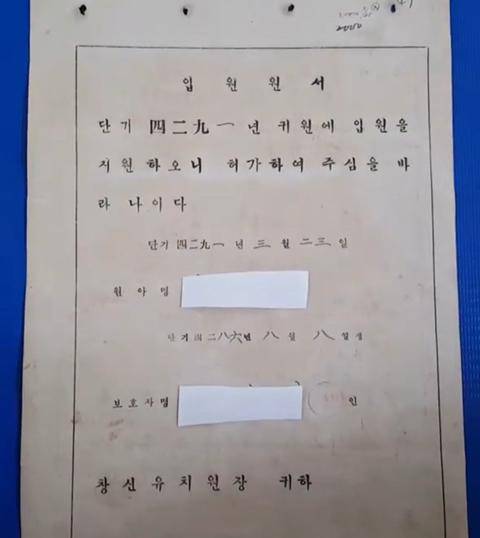 입원원서
단기 四二九一년 귀원에 입원을
지원하오니 허가하여 주심을 바
라나이다
단기 四二九一 년 三 월 二三 일
원아명
단기 四二八六년 八 월 八 일생
보호자명 인
창신유치원장 귀하